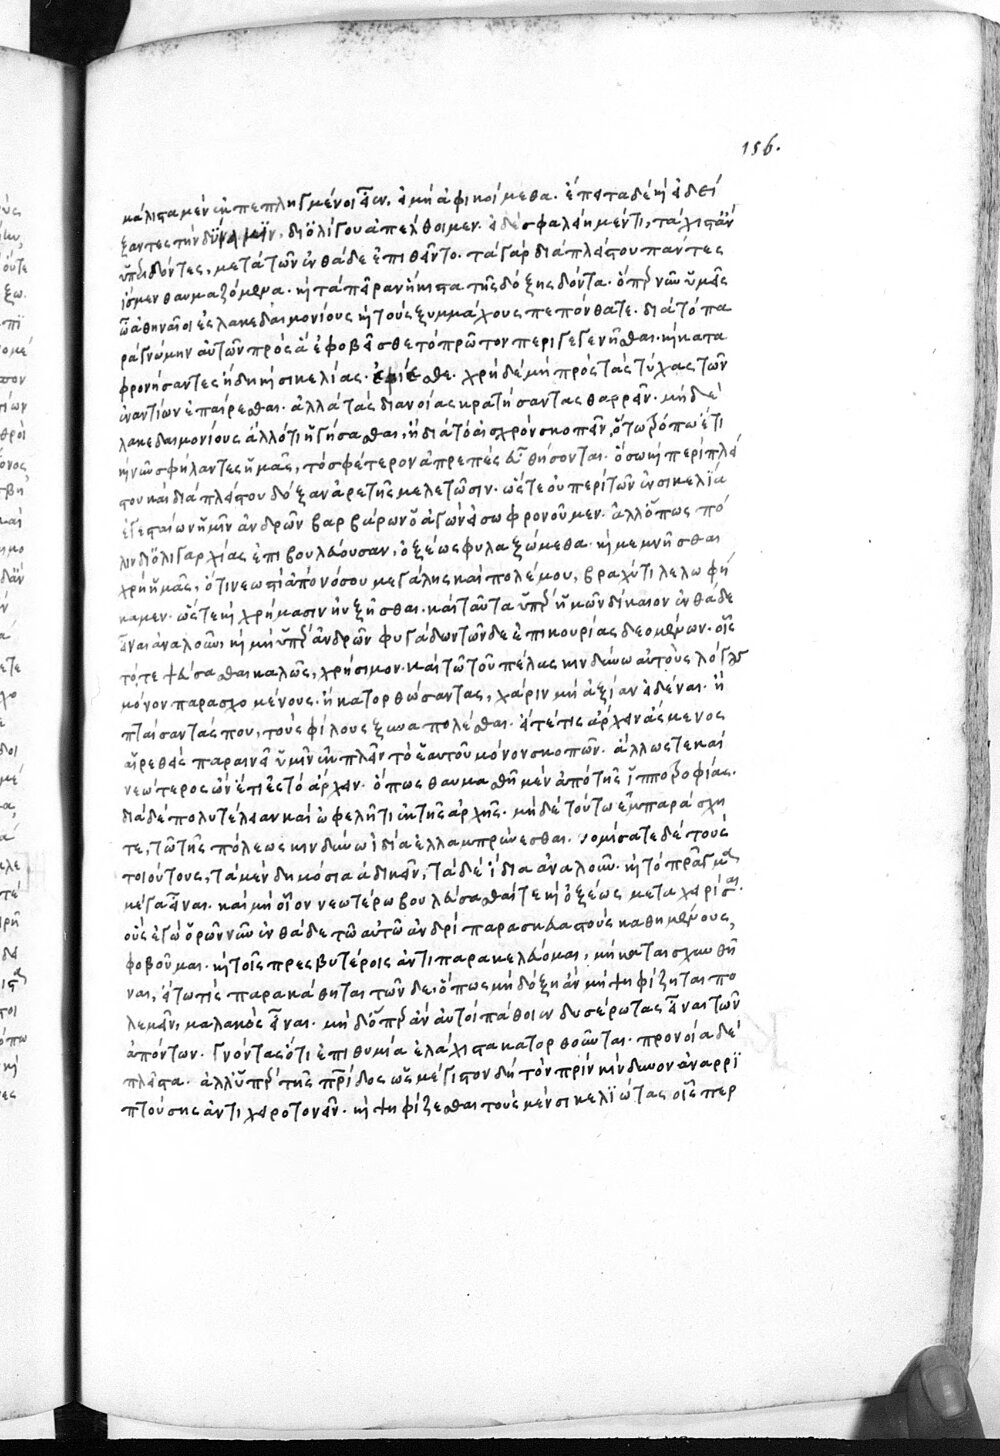 156.
μάλιστα μὲν ἐκπεπληγμένοι εἶεν, εἰ μὴ ἀφικοίμεθα. ἔπειτα δὲ κỳ εἰ δεί
ξαντες τὴν δύναμιν, δι' ὀλίγου ἀπέλθοιμεν. εἰ δὲ σφαλείημέν τι, τάχιστ' ἂν
ὑπεριδόντες, μετὰ τῶν ἐνθάδε ἐπιθεῖντο. τὰ γὰρ διὰ πλείστου πάντες
ἴσμεν θαυμαζόμενα. κỳ τὰ πεῖραν ἥκιστα τῆς δόξης δόντα. ὅπερ νῦν ὑμεῖς
ὦ ἀθηναῖοι ἐς λακεδαιμονίους κỳ τοὺς ξυμμάχους πεπόνθατε. διὰ τὸ πα
ρὰ γνώμην αὐτῶν πρὸς ἃ ἐφοβεῖσθε τὸ πρῶτον περιγεγενῆσθαι. κỳ κατα
φρονήσαντες ἤδη κỳ σικελίας. ἐφίεσθε. χρὴ δὲ μὴ πρὸς τὰς τύχας τῶν
ἐναντίων ἐπαίρεσθαι. ἀλλὰ τὰς διανοίας κρατήσαντας θαρρεῖν. μηδὲ
λακεδαιμονίους ἄλλό τι ἡγήσασθαι, ἢ διὰ τὸ αἰσχρὸν σκοπεῖν, ὅτῳ τρόπῳ ἔτι
κỳ νῦν σφήλαντες ἡμᾶς, τὸ σφέτερον ἀπρεπὲς εὖ θήσονται. ὅσῳ κỳ περὶ πλεί
στου καὶ διὰ πλείστου δόξαν ἀρετῆς μελετῶσιν. ὥστε οὐ περὶ τῶν ἐν σικελίᾳ
ἐγεσταίων ἡμῖν ἀνδρῶν βαρβάρων ὁ ἀγὼν εἰ σωφρονοῦμεν. ἀλλ' ὅπως πό
λιν δι' ὀλιγαρχίας ἐπιβουλεύουσαν, ὀξέως φυλαξώμεθα. κỳ μεμνῆσθαι
χρὴ ἡμᾶς, ὅτι νεωστὶ ἀπὸ νόσου μεγάλης καὶ πολέμου, βραχύ τι λελωφή
καμεν. ὥστε κỳ χρήμασιν ηὐξῆσθαι. καὶ ταῦτα ὑπὲρ ἡμῶν δίκαιον ἐνθάδε
εἶναι ἀναλοῦν, κỳ μὴ ὑπὲρ ἀνδρῶν φυγάδων τῶνδε ἐπικουρίας δεομένων. οἷς
τό, τε ψεύσασθαι καλῶς, χρήσιμον. καὶ τῷ τοῦ πέλας κινδύνῳ αὐτοὺς λόγους
μόνον παρασχομένους. ἢ κατορθώσαντας, χάριν μὴ ἀξίαν εἰδέναι. ἢ
πταίσαντάς που, τοὺς φίλους ξυναπολέσθαι. εἴτέ τις ἄρχειν ἄσμενος
αἱρεθεὶς παραινεῖ ὑμῖν ἐκπλεῖν τὸ ἑαυτοῦ μόνον σκοπῶν. ἄλλως τε καὶ
νεώτερος ὢν ἔτι ἐς τὸ ἄρχειν. ὅπως θαυμασθῇ μὲν ἀπὸ τῆς ἱπποτροφίας.
διὰ δὲ πολυτέλειαν καὶ ὠφεληθῇ τι ἐκ τῆς ἀρχῆς. μηδὲ τούτῳ ἐμπαράσχη
τε, τῷ τῆς πόλεως κινδύνῳ ἰδίᾳ ἐλλαμπρύνεσθαι. νομίσατε δὲ τοὺς
τοιούτους, τὰ μὲν δημόσια ἀδικεῖν, τὰ δὲ ἴδια ἀναλοῦν. κỳ τὸ πρᾶγμα
μέγα εἶναι. καὶ μὴ οἷον νεωτέρῳ βουλεύσασθαί τε κỳ ὀξέως μεταχειρίσαι.
οὓς ἐγὼ ὁρῶν νῦν ἐνθάδε τῷ αὐτῷ ἀνδρὶ παρασκευαστοὺς καθημένους,
φοβοῦμαι. κỳ τοῖς πρεσβυτέροις ἀντιπαρακελεύομαι, μὴ καταισχυνθῆ
ναι, εἴ τῳ τις παρακάθηται τῶν δε, ὅπως μὴ δόξῃ ἂν μὴ ψηφίζηται πο
λεμεῖν, μαλακὸς εἶναι. μηδ' ὅπερ ἂν αὐτοὶ πάθοιεν δυσέρωτας εἶναι τῶν
ἀπόντων. γνόντας ὅτι ἐπιθυμίᾳ ἐλάχιστα κατορθοῦνται. προνοίᾳ δὲ
πλεῖστα. ἀλλ' ὑπὲρ τῆς πατρίδος ὡς μέγιστον δὴ τὸν πρὶν κίνδυνον ἀναρρι
πτούσης ἀντιχειροτονεῖν. κỳ ψηφίζεσθαι τοὺς μὲν σικελιώτας οἷς περ